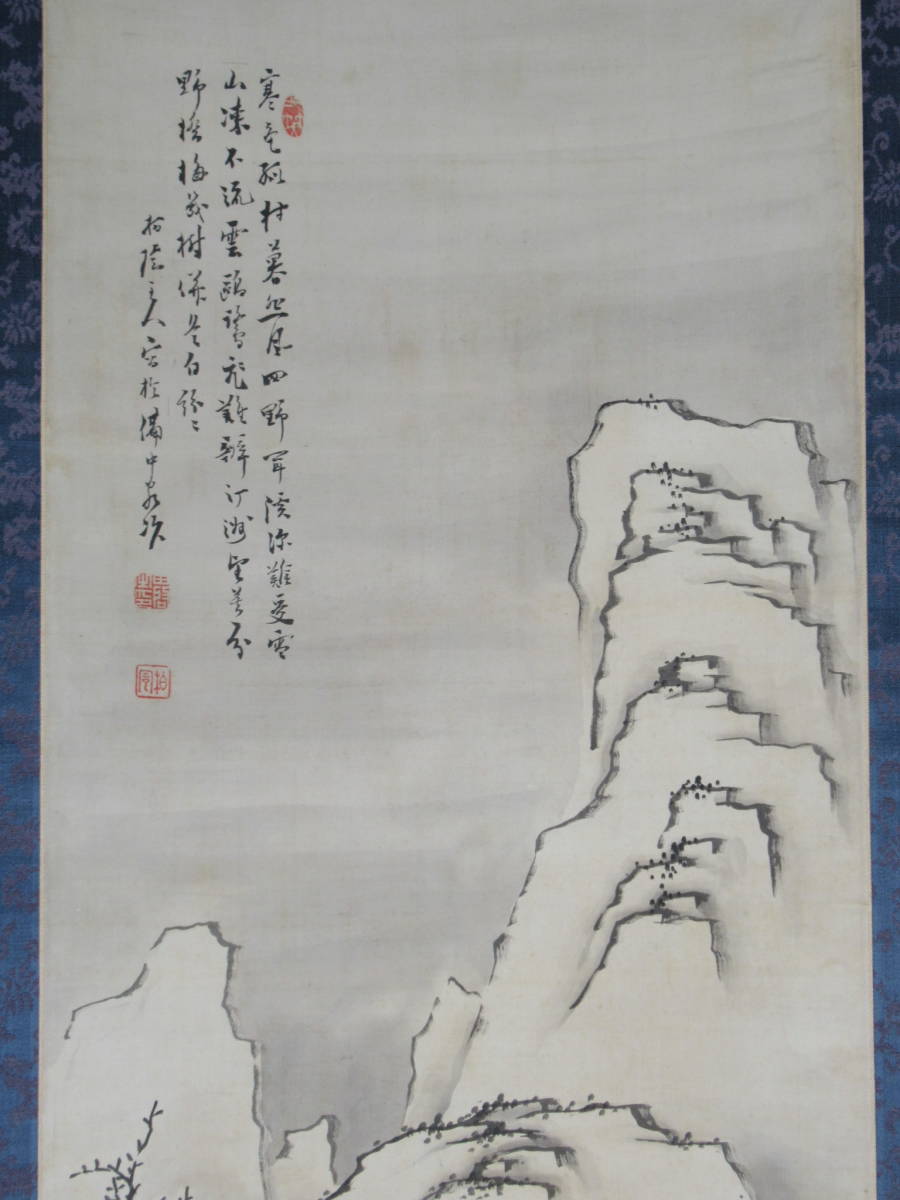 寒色孤村暮悲風四野聞溪深難受雪
山凍不流雲鷗鷺飛難辨汀洲望莫分
野橋梅幾樹併是白紛々
陰主人写於備中客次